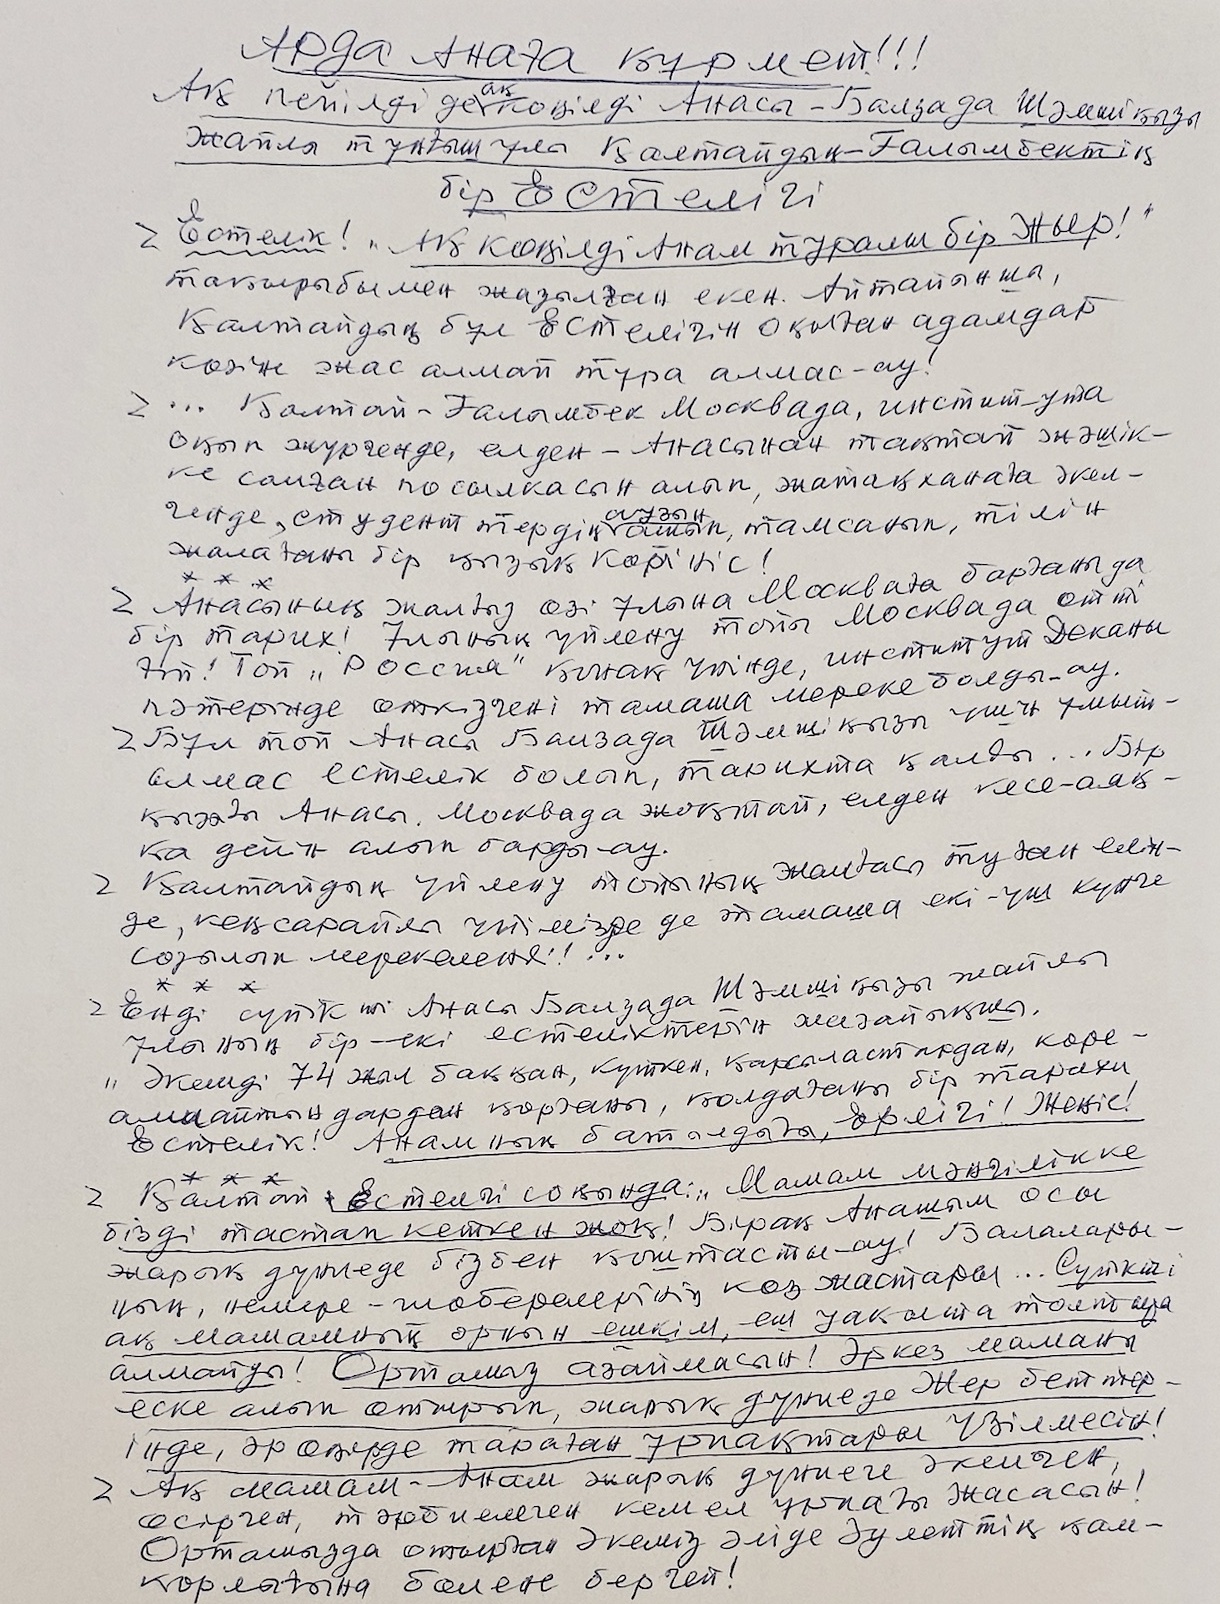 Арда Анаға құрмет!!!
Ақ пейілді де ақ көңілді Анасы - Балзада Шәмшіқызы
жайлы тұңғыш ұлы Қалтайдың-Ғалымбектің
бір Естелігі
Естелік! „Ақ көңілді Анам туралы бір Жыр!"
тақырыбымен жазылған екен. Айтайынша,
Қалтайдың бұл Естелігін оқыған адамдар
көзіне жас алмай тұра алмас-ау!
... Қалтай-Ғалымбек Москвада, институтта
оқып жүргенде, елден - Анасынан тақтай жәшік-
ке салған посылкасын алып, жатақханаға әкел-
генде, студенттердің аузын ашып, тамсанып, тілін
жалағаны бір қызық көрініс!
* * *
Анасының жалғыз өзі ұлына Москваға барғаны да
бір тарих! Ұлының үйлену тойы Москвада өтті
ғой! Той „Россия" қонақ үйінде, институт Деканы
пәтерінде өткізгені тамаша мереке болды-ау.
Бұл той Анасы Балзада Шәмшіқызы үшін ұмыт-
алмас естелік болып, тарихта қалды... Бір
қызығы Анасы. Москвада жоқтай, елден кесе-аяқ-
қа дейін алып барды-ау.
Қалтайдың үйлену тойының жалғасы туған елін-
де, кең сарайлы үйімізде де тамаша екі-үш күнге
созылып мерекеленді!...
* * *
Енді сүйікті Анасы Балзада Шәмшіқызы жайлы
ұлының бір-екі естеліктерін жазайықшы.
„Әкемді 74 жыл баққан, күткен, қарсыластардан, көре-
алмайтындардан қорғаны, қолдағаны бір тарихи
Естелік! Анамның батылдығы, Ерлігі! Жеңіс!
* * *
Қалтай Естелігі соңында: „Мамам мәңгілікке
бізді тастап кеткен жоқ! Бірақ Анашым осы
жарық дүниеде бізбен қоштасты-ау! Балалары-
ның, немере-шөберелерінің көз жастары... Сүйікті
ақ мамамның орнын ешкім, еш уақытта толтыра
алмайды! Ортамыз азаймасын! Әркез маманы
еске алып отырып, жарық дүниеде Жер беттер-
інде, әр өңірде тараған ұрпақтары Үзілмесін!
Ақ мамам-Анам жарық дүниеге әкелген,
өсірген, тәрбиелеген кемел ұрпағы Жасасын!
Ортамызда отырған Әкеміз әліде Әулеттің қам-
қорлығына бөлене бергей!